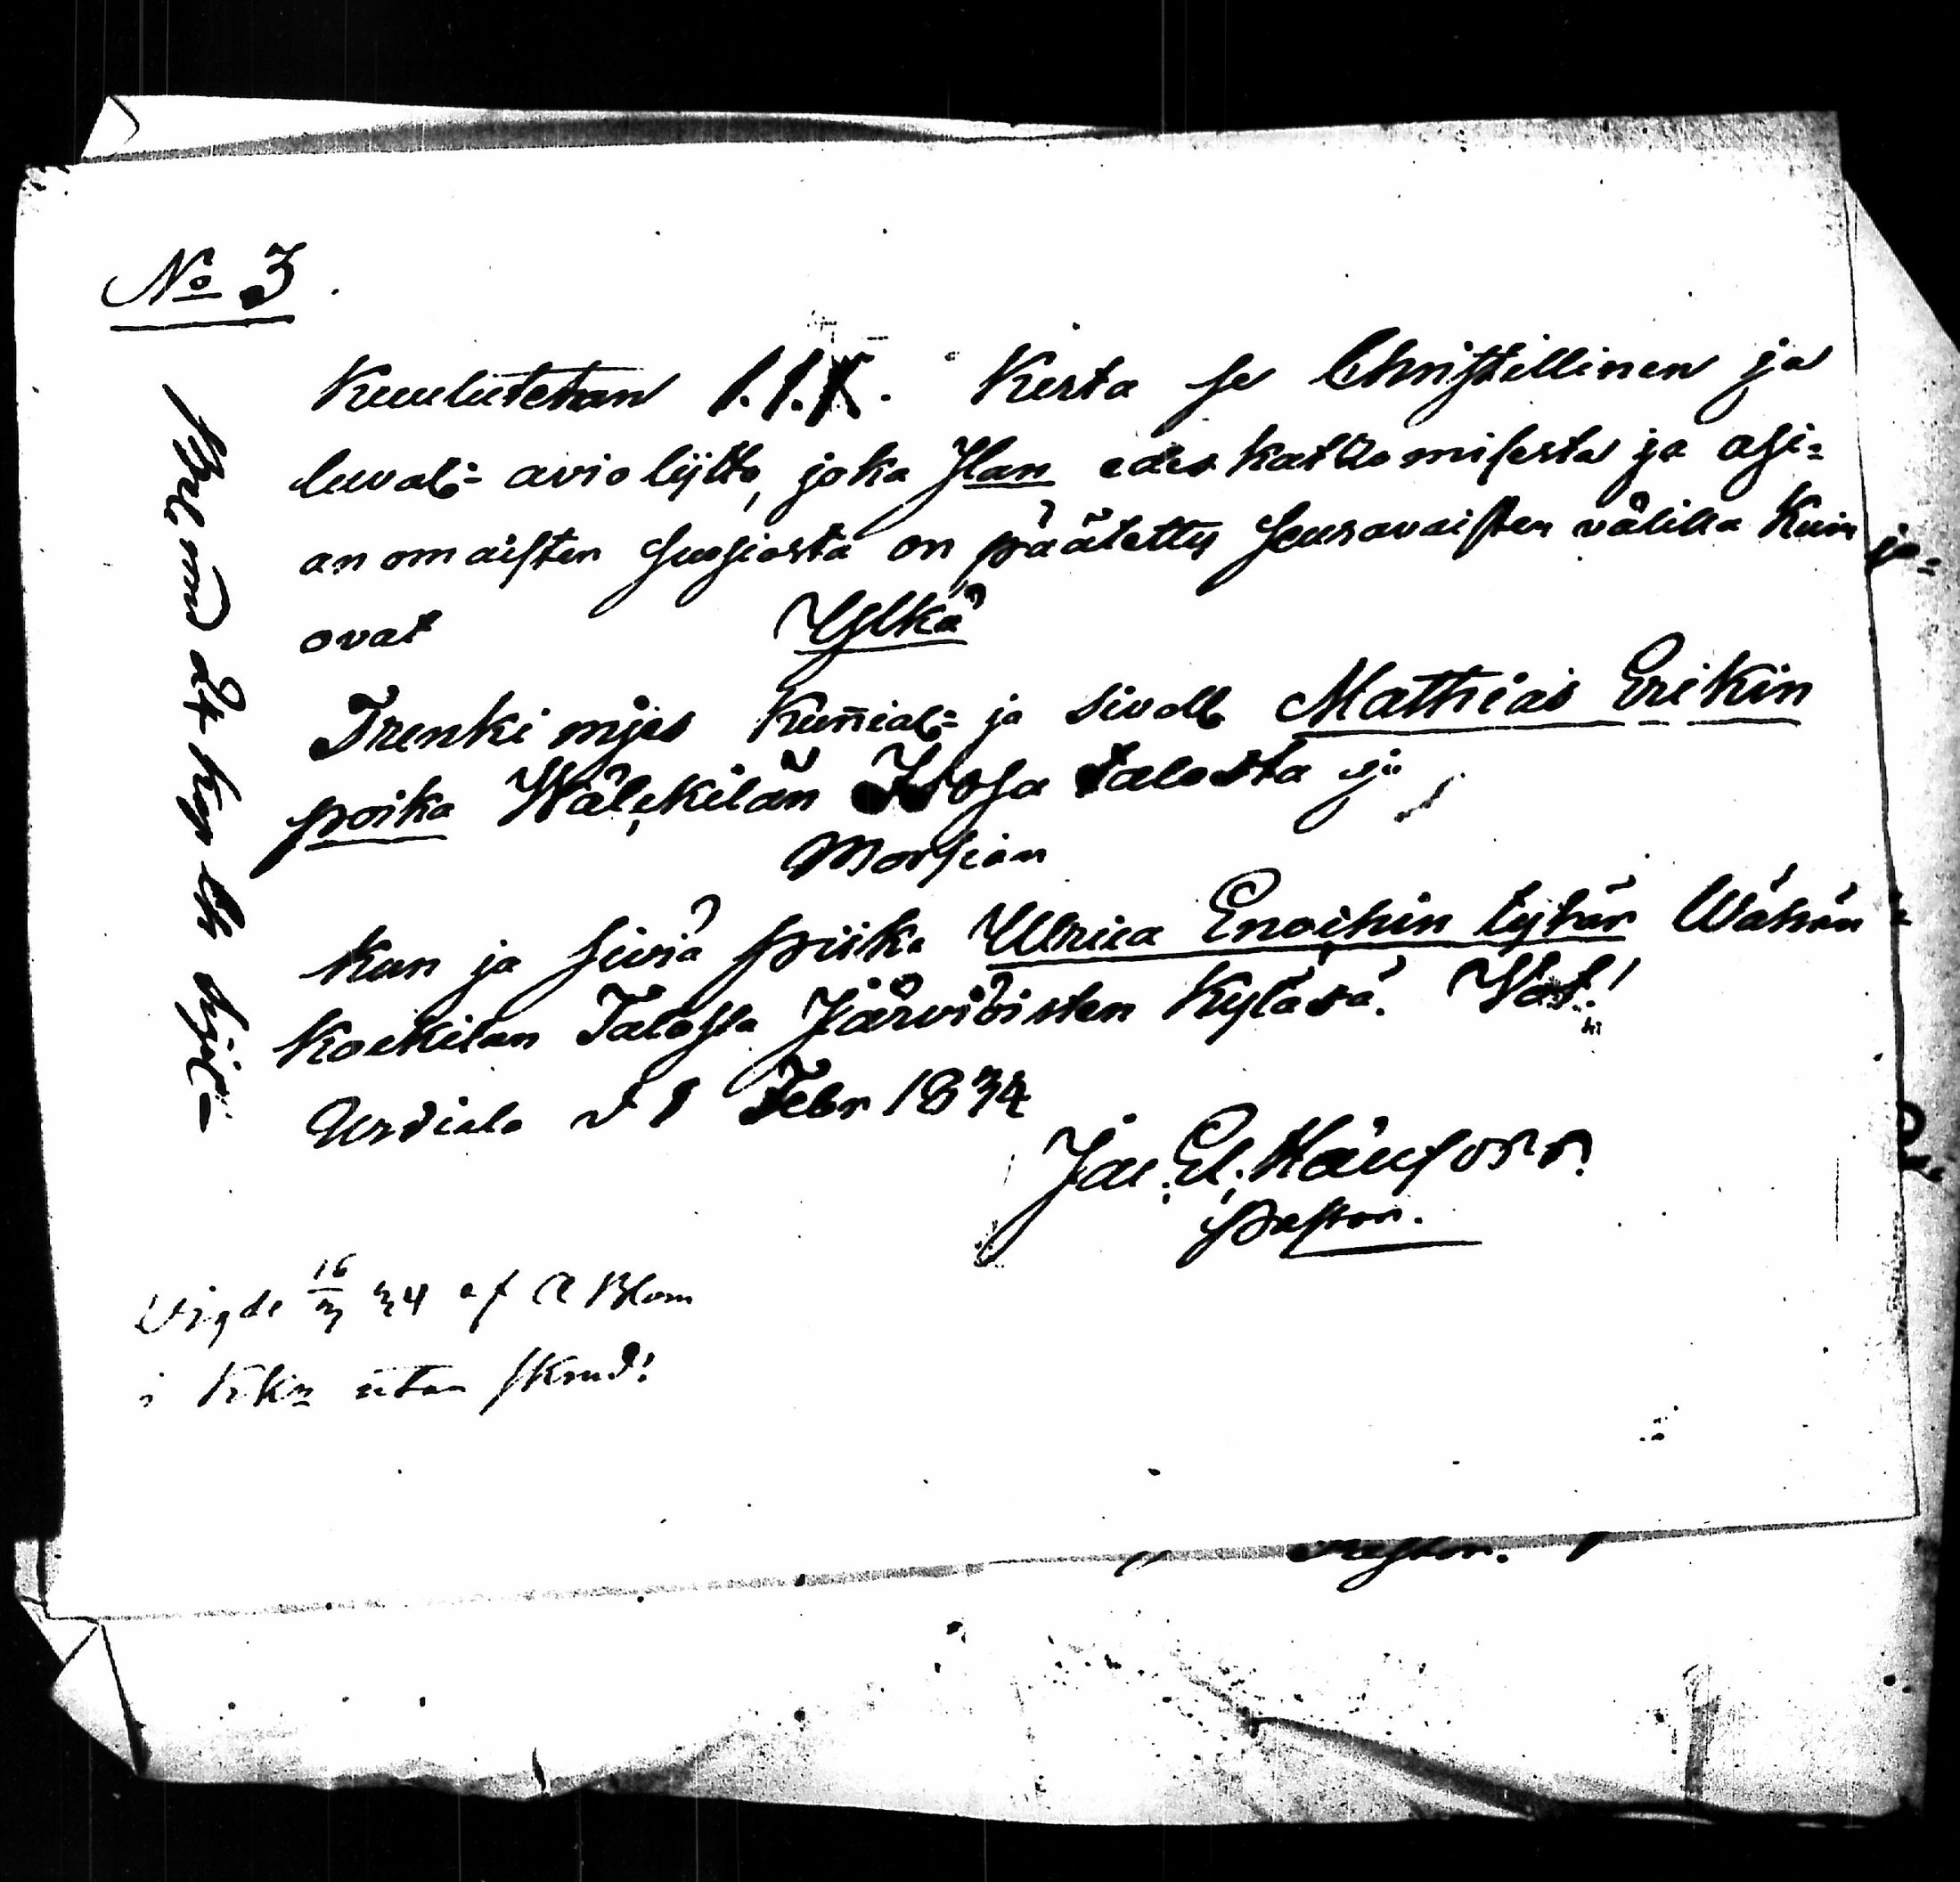 No 3.
Kuulutetan I.I.X. Kerta se Christillinen ja
luvall: avioliitto, joka Jlan edeskattomisesta ja asi=
anomaisten suosiosta on päätetty seuravaisten välillä kuin
ovat Ylkä
Trenki mjes kunial= ja sivell Mathias Erikin
poika Wälckilän Isosa talosta ja
Morsian
Kun ja siviä piika Ulrica Enochin tytär Wähän
Kockilan Talosta Järviöisten Kyläsä. Vot!
Urdiala d 9 Febr 1834
Jac. Ed. Häufors
Pastor.
Vigde 16/3 34 af A Blom
i Krkn utan skrud!
pastor.